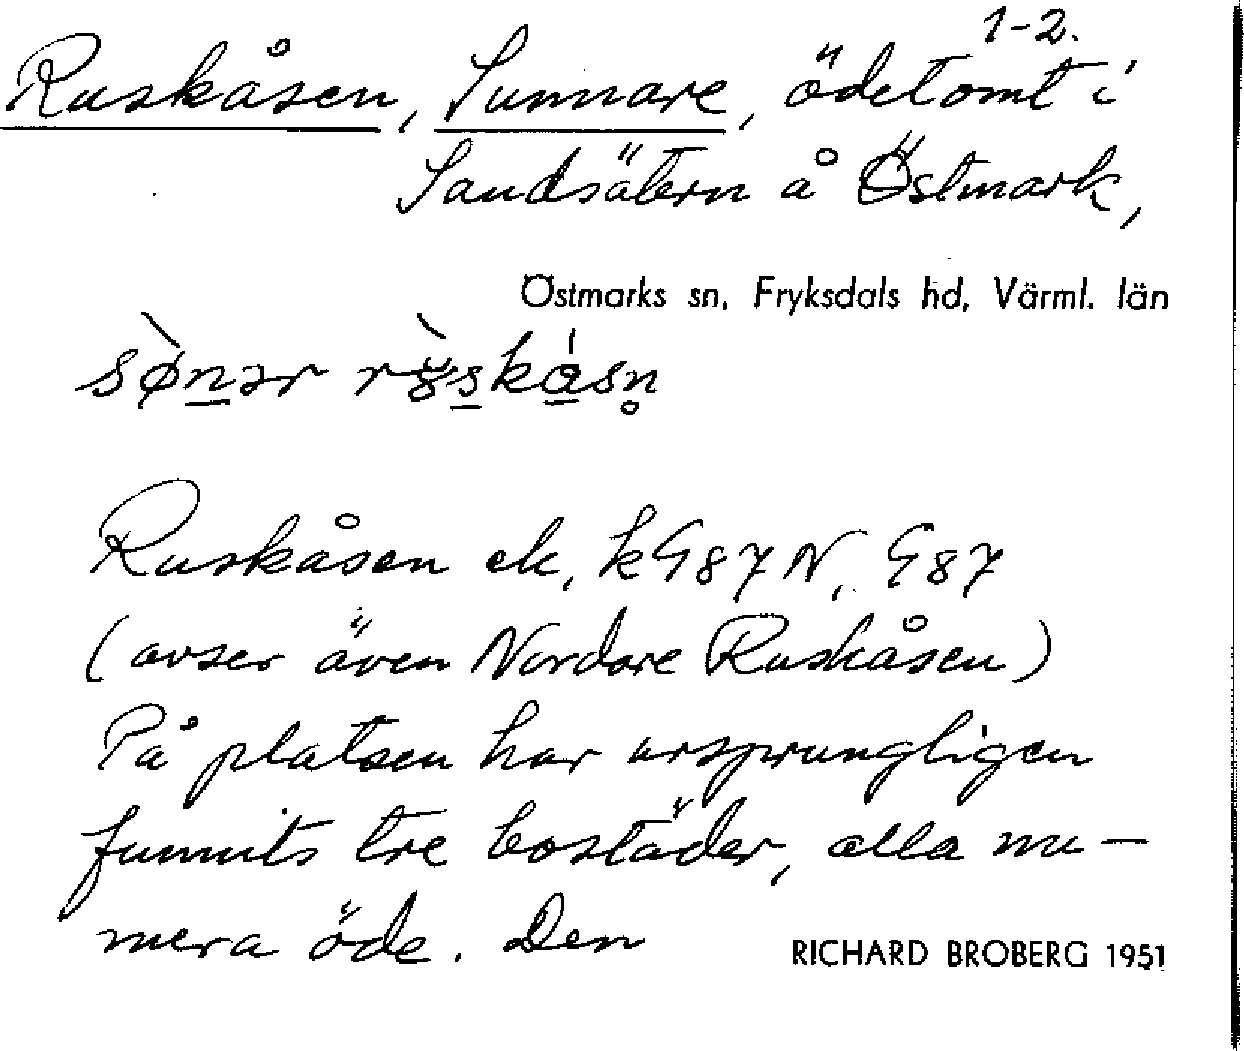 1-2.
Ruskåsen, Sunnare, ödetomt i
Sandsätern å Östmark,
Östmarks sn, Fryksdals hd, Värml. län
Ruskåsen ek, kG87N, G87
(avser även Nordare Ruskåsen)
På platsen har ursprungligen
funnits tre bostäder, alla nu-
mera öde. Den
RICHARD BROBERG 1951